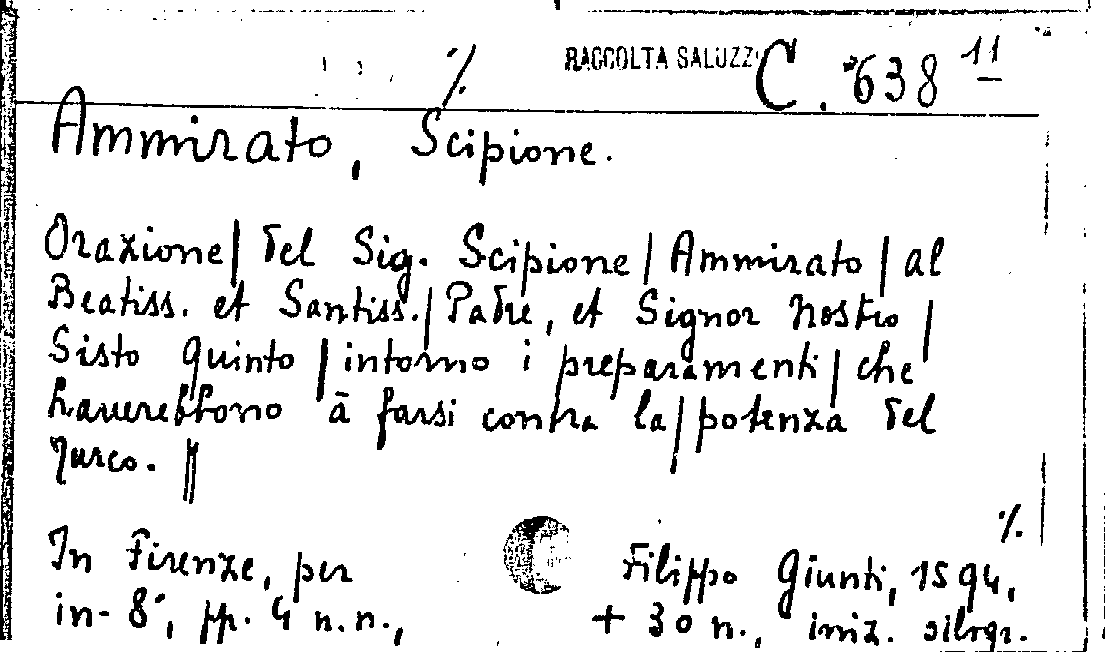 ·/. RACCOLTA SALUZZO C. 638 11
Ammirato, Scipione.
Orazione| del Sig. Scipione | Ammirato | al
Beatiss. et Santiss.| Padre, et Signor Nostro |
Sisto Quinto | intorno i preparamenti | che
hauerebbono à farsi contra la | potenza del
Turco. ||
·/.
In Firenze, per Filippo Giunti, 1594,
in-8°, pp. 4 n.n., + 30 n., iniz. silogr.